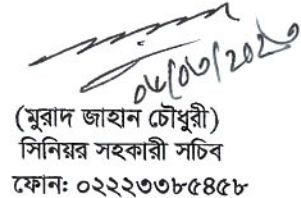 ০৮/০৩/২০২৩
(মুরাদ জাহান চৌধুরী)
সিনিয়র সহকারী সচিব
ফোনঃ ০২২২৩৩৮৫৪৫৮